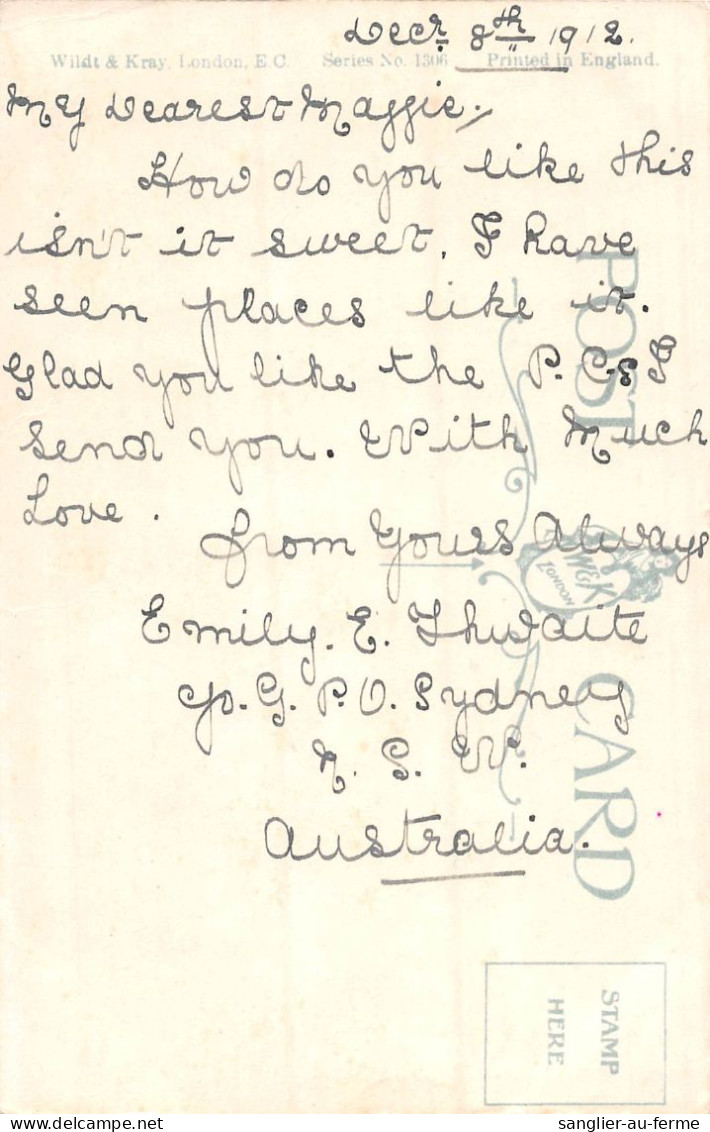 Decr. 8th 1912.
Wildt & Kray, London, E.C. Series No. 1306 Printed in England.
My Dearest Maggie,
How do you like this
isn't it sweet. I have
seen places like it.
Glad you like the P. Cs I
send you. With Much
Love.
from Yours Always
Emily. E. Thwaite
c/o. G. P. O. Sydney
N. S. W.
Australia.
POST CARD
W&K
LONDON
STAMP
HERE
sanglier-au-ferme